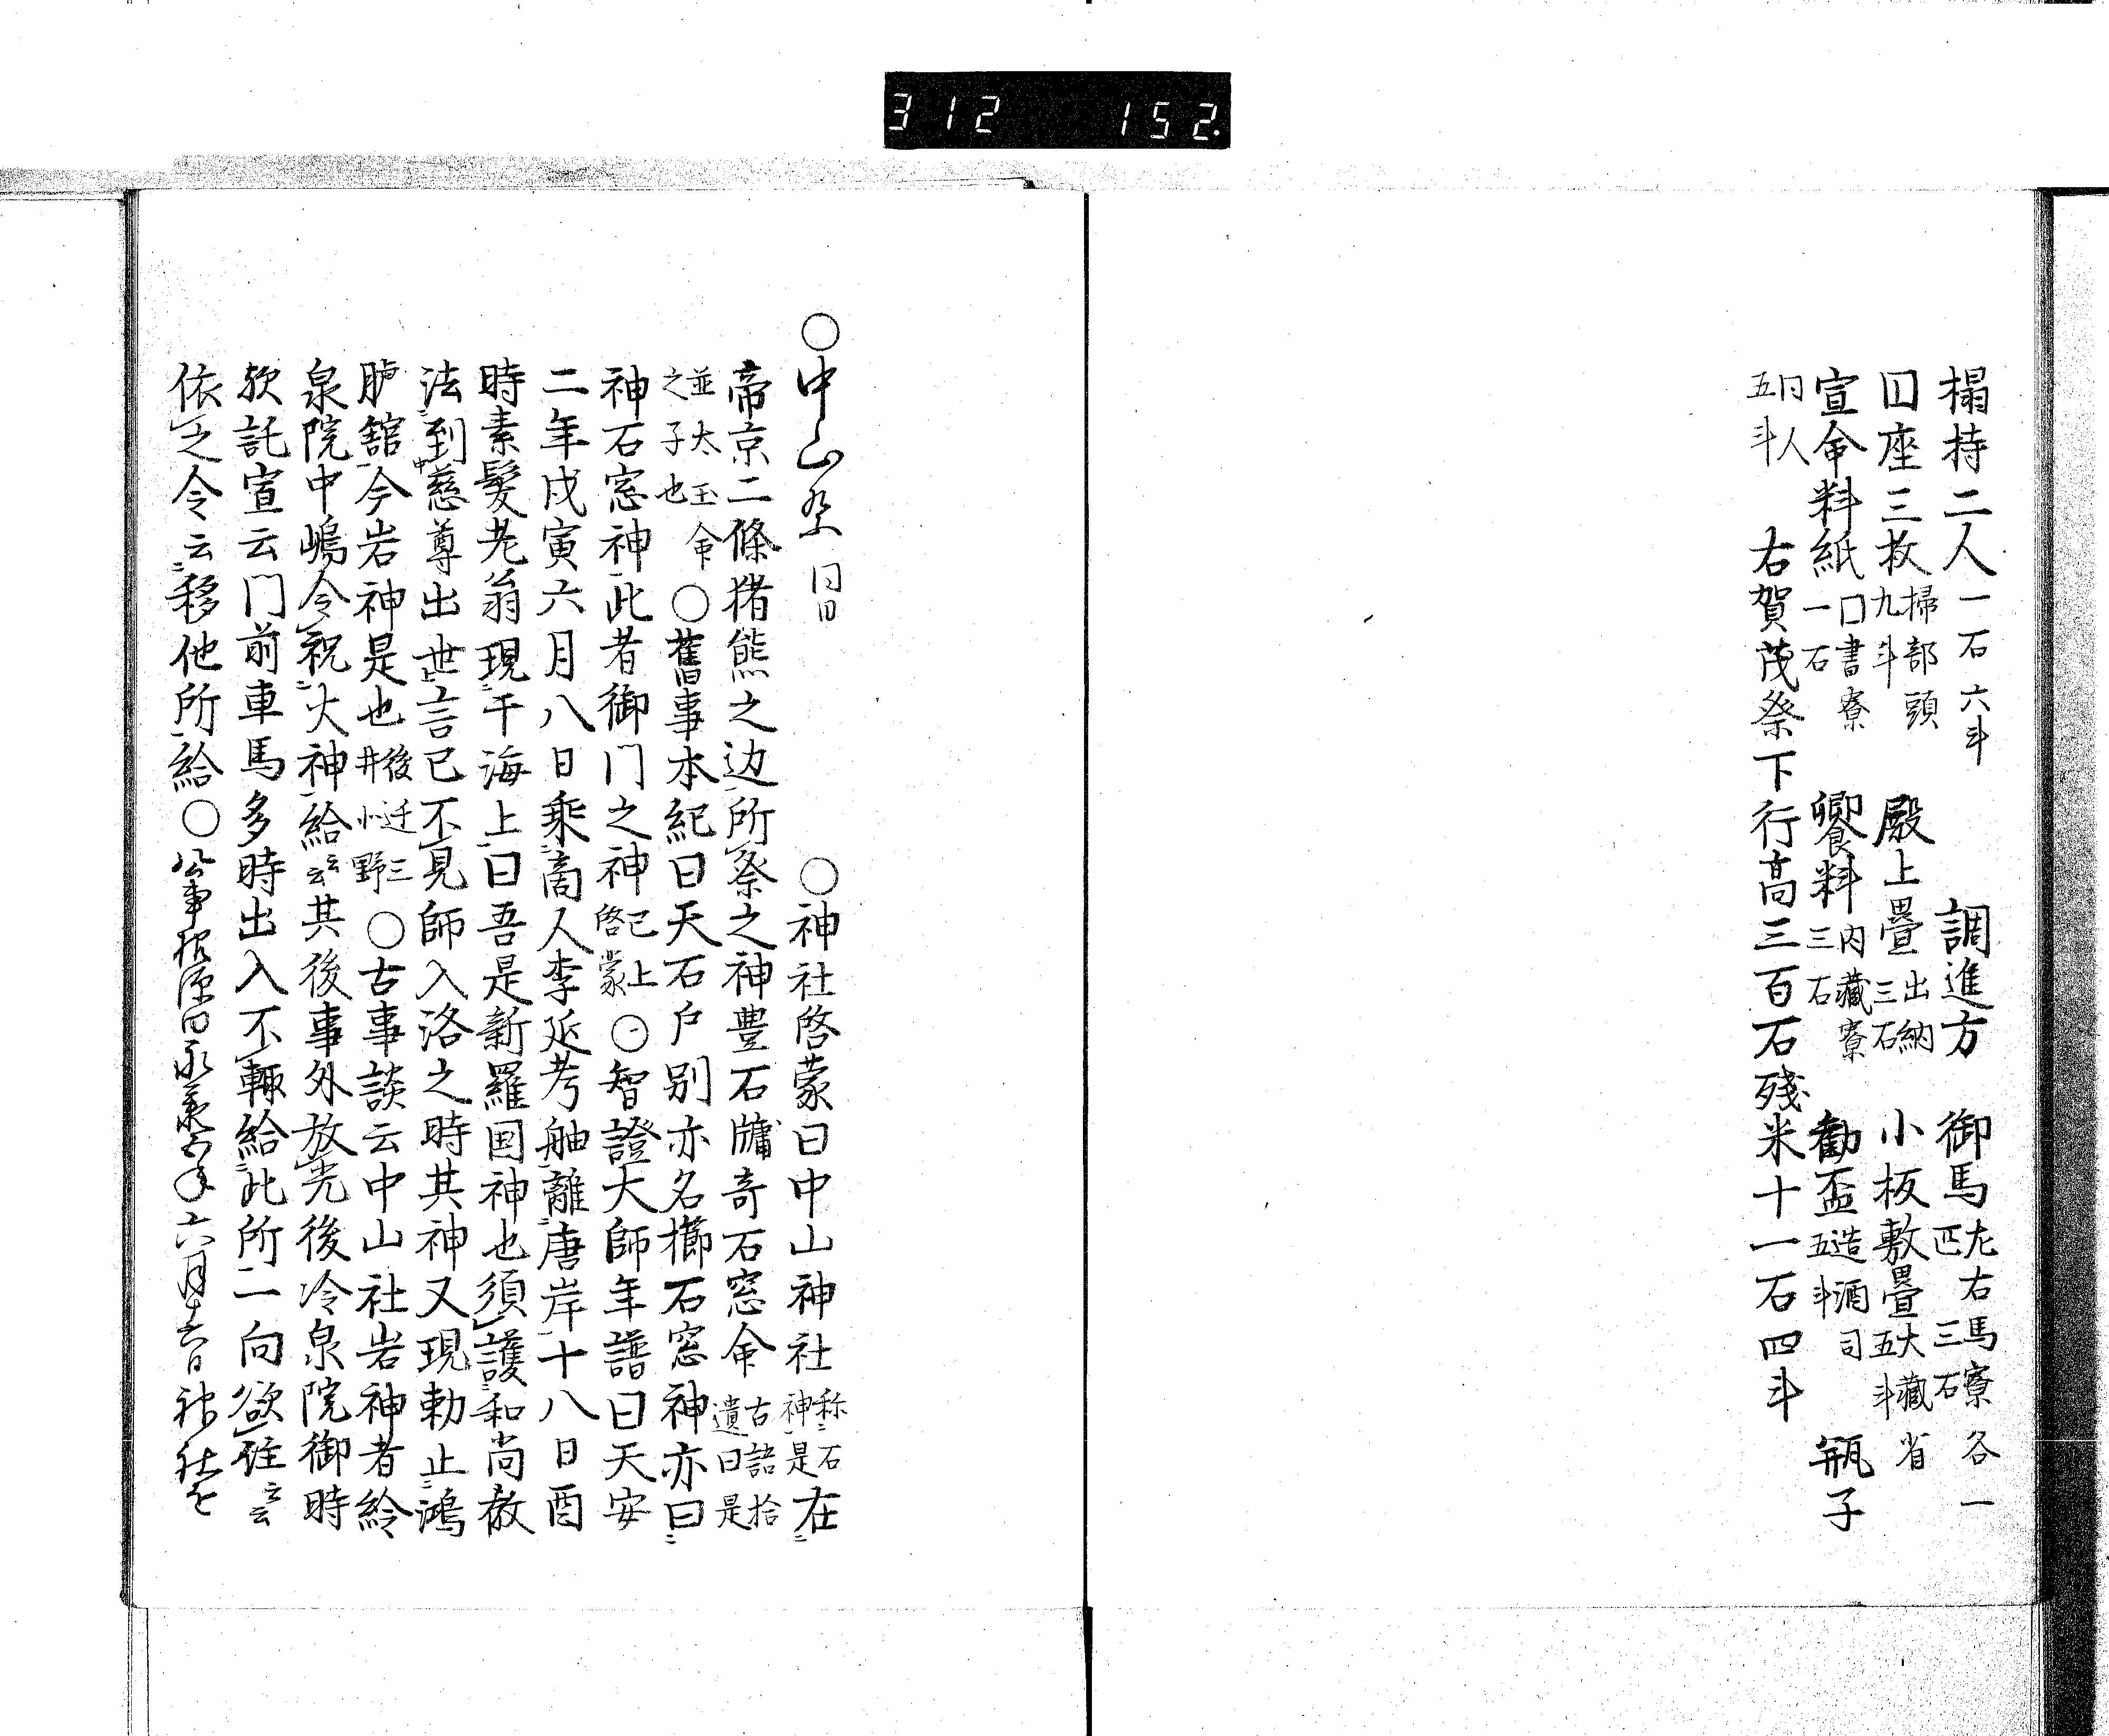 312 152.
榻持二人一石六斗 調進方 御馬左右馬寮各一匹三石
囙座三枚掃部頭九斗 殿上疊出納三石 小板敷疊大藏省五斗
宣命料紙囗書寮一石 饗料内藏寮三石 勸盃造酒司五斗 瓶子
囙人五斗 右賀茂祭下行高三百石殘米十一石四斗
○中山祭囙日 ○神社啓蒙曰中山神社称石神是在
帝京二條猪熊之边所祭之神豊石牗奇石窓命古語拾遺曰是
並太玉命之子也○舊事本紀曰天石戸别亦名櫛石窓神亦曰
神石窓神此者御门之神已上啓蒙○智證大師年譜曰天安
二年戊寅六月八日乘商人李延考舳離唐岸十八日酉
時素髮老翁現干海上曰吾是新羅国神也須護和尚教
法到慈尊出世言已不見師入洛之時其神又現勅止鴻
臚舘今岩神是也後迁三井小野○古事談云中山社岩神者給
泉院中嶋令祝火神給云云其後事外放光後冷泉院御時
欤託宣云门前車馬多時出入不輙給此所二向欲住云云
依之令云移他所給○公事根源曰永承五年六月十六日神社を